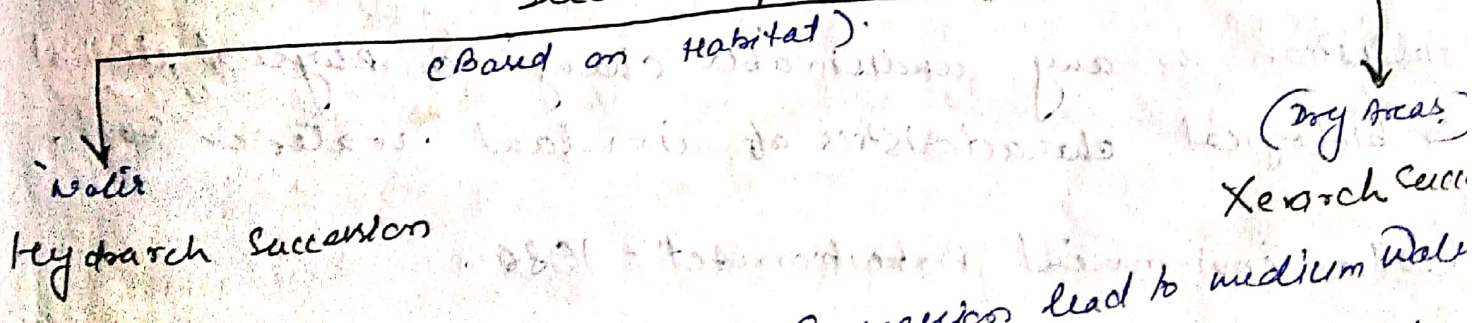 (Based on Habitat).
(Dry Areas)
Water
Xerarch Succ
Hydrarch Succession
lead to medium Wate